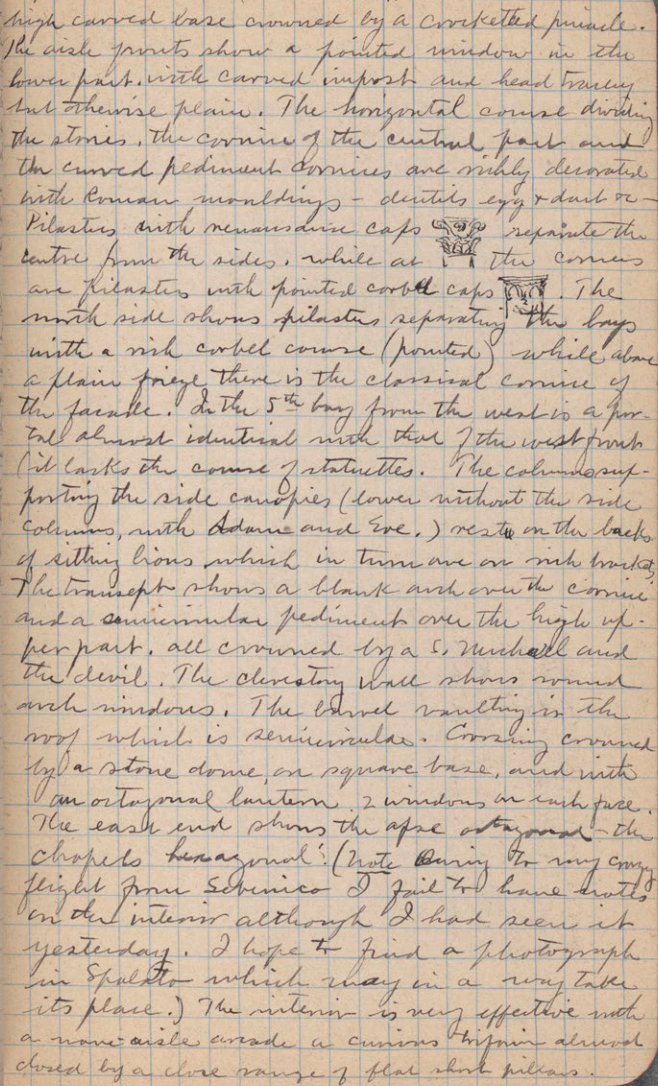 high carved base crowned by a crocketted pinacle.
The aisle fronts show a pointed window in the
lower part. with carved impost and head tracery
but otherwise plain. The horizontal course dividing
the stories, the cornice of the central part and
the curved pediment cornices are richly decorated
with Roman mouldings - dentils egg & dart &c -
Pilasters with renaissance caps separate the
centre from the sides. while at the corners
are pilasters with pointed corbel caps . The
north side shows pilasters separating the bays
with a rich corbel course (pointed) while above
a plain frieze there is the classical cornice of
the facade. In the 5th bay from the west is a por-
tal almost identical with that of the west front
(it lacks the course of statuettes. The columns sup-
porting the side canopies (lower without the side
columns, with Adam and Eve.) rest on the backs
of sitting lions which in turn are on rich brackets.
The transept shows a blank arch over the cornice
and a semicircular pediment over the high up-
per part. all crowned by a S. Michael and
the devil. The clerestory wall shows round
arch windows. The barrel vaulting is the
roof which is semicircular. Crossing crowned
by a stone dome, on square base, and with
an octagonal lantern 2 windows on each face.
The east end shows the apse octagonal - the
chapels hexagonal! (Note Owing to my crazy
flight from Sebenico I fail to have notes
on the interior although I had seen it
yesterday. I hope to find a photograph
in Spalato which may in a way take
its place.) The interior is very effective with
a nave-aisle arcade a curious triforium almost
closed by a close range of flat short pillars.